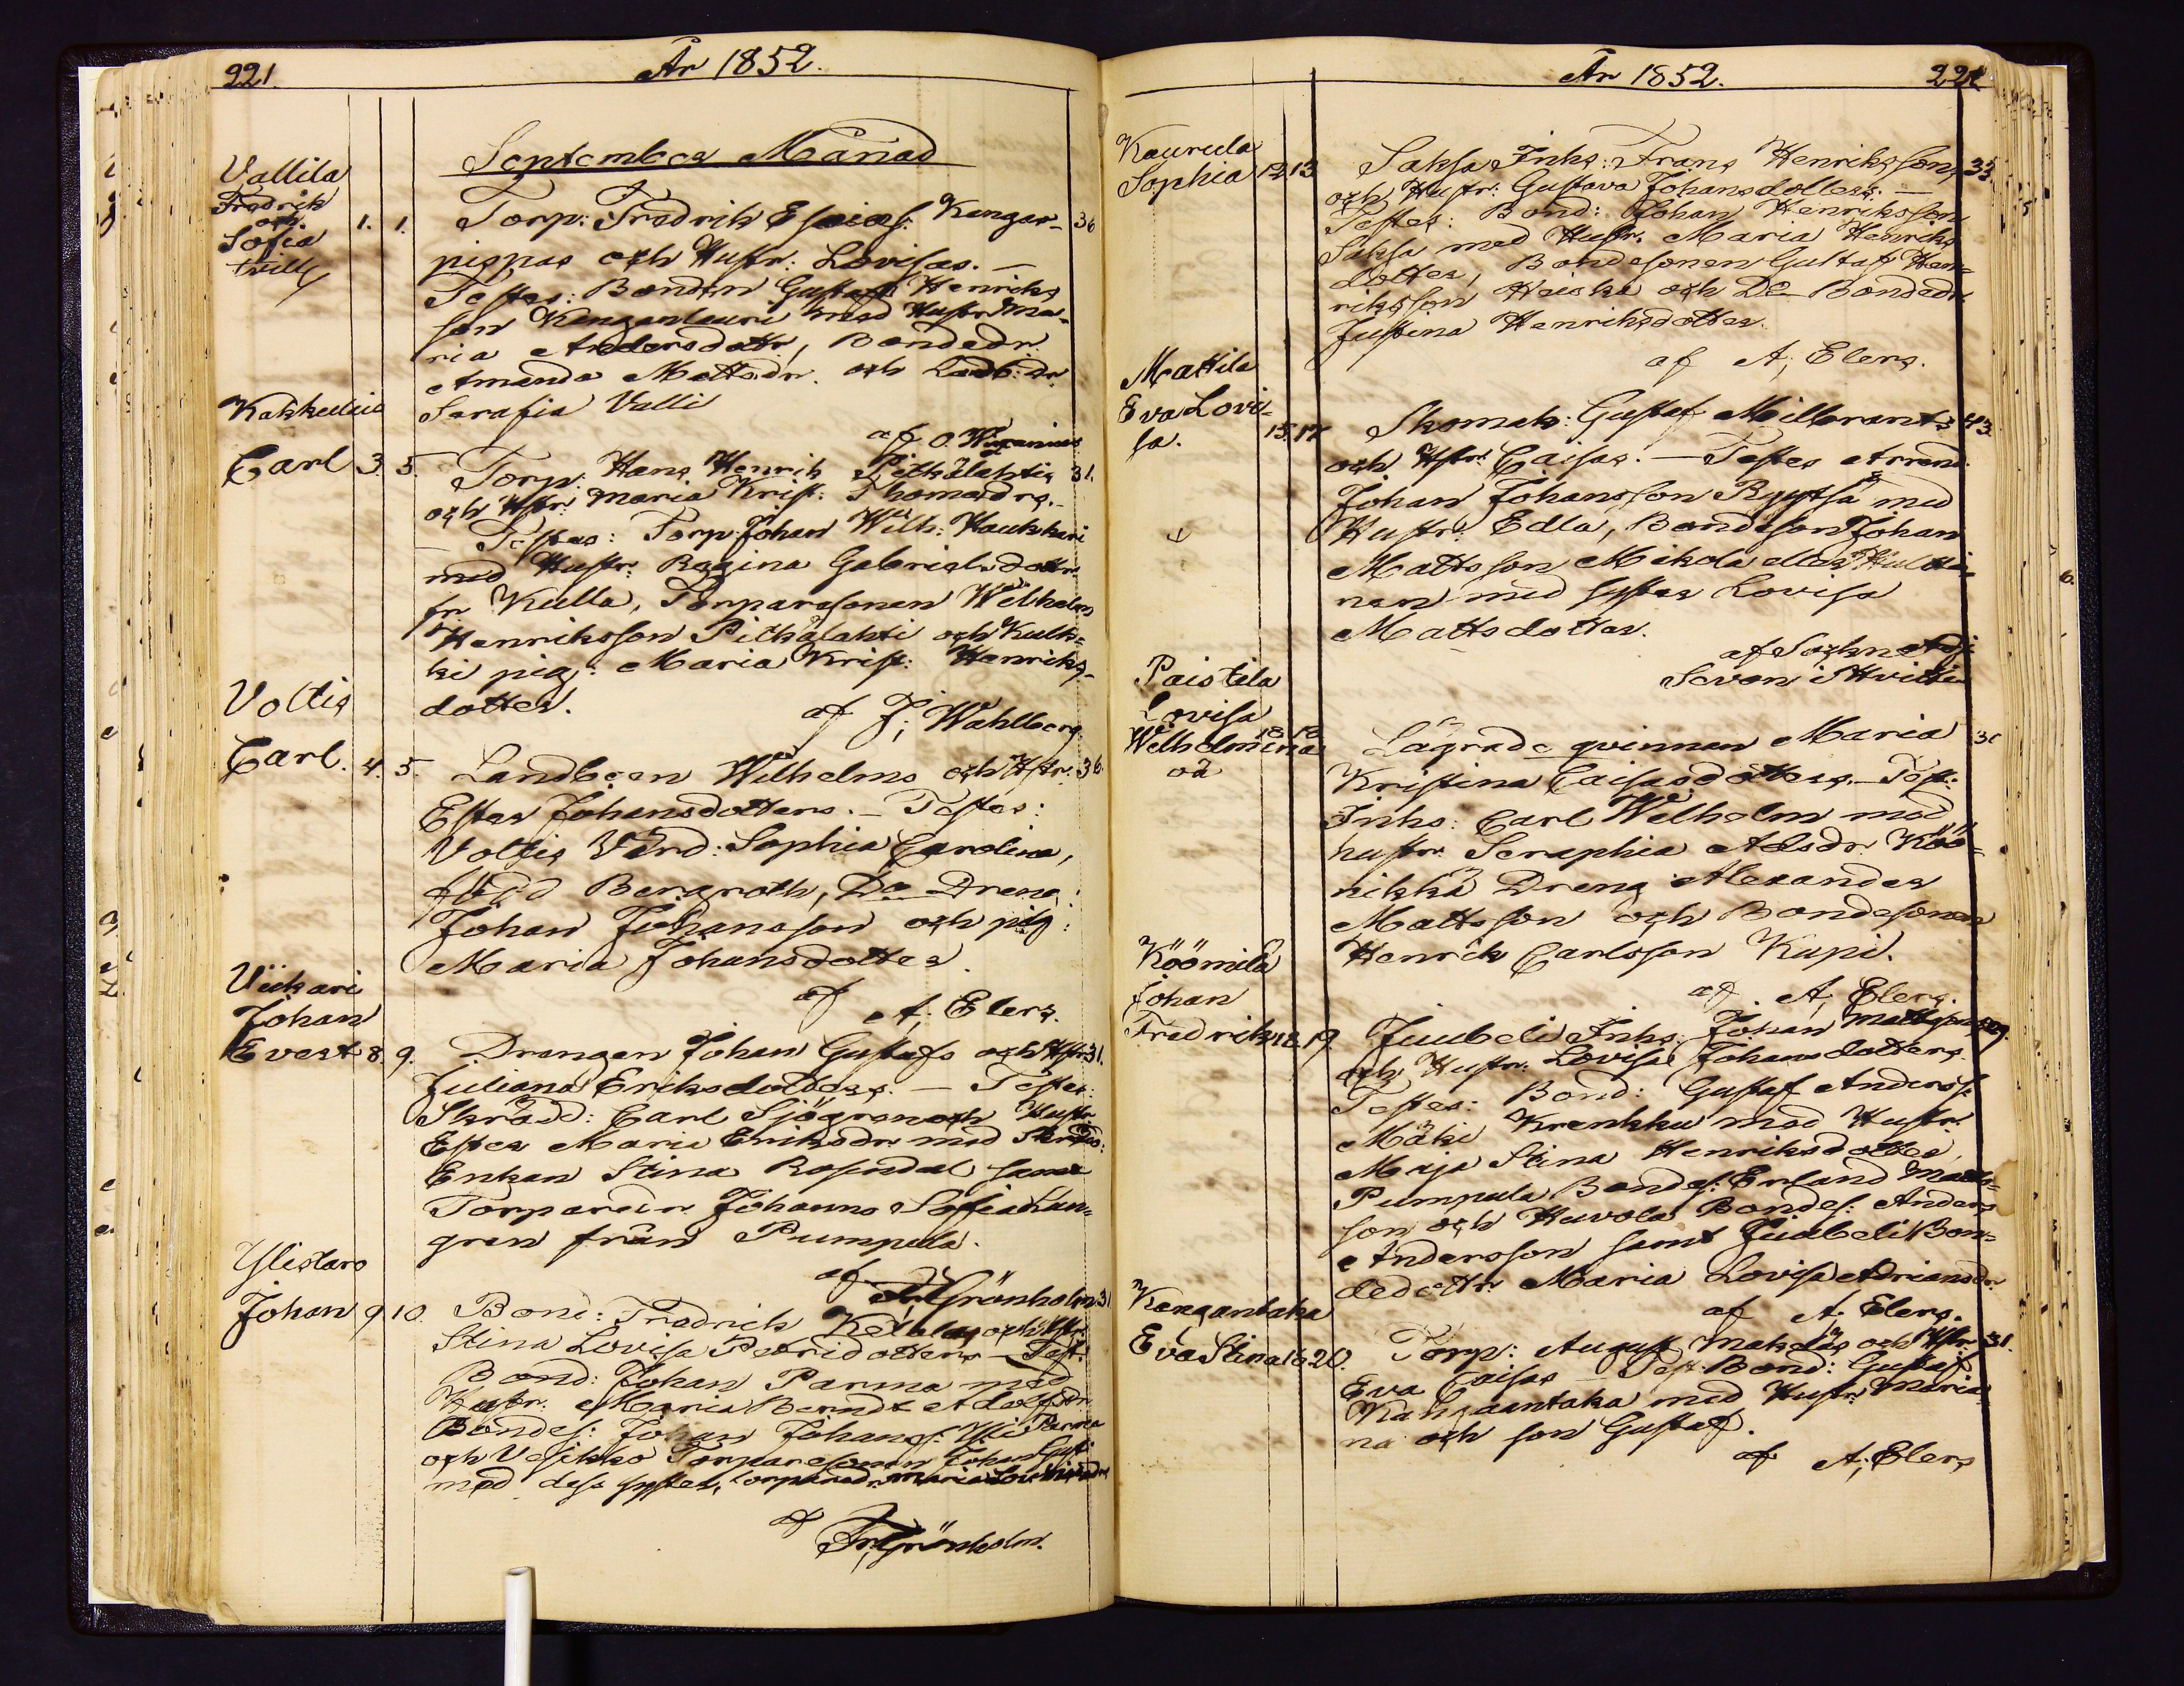 221.
År 1852.
September Månad
Vallila
Fredrik
och
Sofia
tvill
1. 1. Torp: Fredrik Esaias: Kangas- 36
pispas och Hustr: Lovisas. —
Testes: Bonden Gustaf Henriks
son Kanganlauri med Hustr Ma-
ria Andersdottr, Bondedr
Amanda Mattsdr. och Landb: dr
Serafia Valli
af O. Wigenius
Kakkulais
Carl 3. 5. Torp: Hans Henrik Pitkälahtis 31.
och Hstr: Maria Krist: Thomasdrs. —
— Testes: Torp: Johan Wilh: Haukkari
med Hustr: Regina Gabrielsdottr
fr Kulla, Torparesonen Wilhelm
Henriksson Pitkälahti och Kulk-
ki pig: Maria Krist: Henriks-
dotter.
af J; Wahlberg
Voltis
Carl. 4. 5. Landb:en Wilhelms och Hstr. 36.
Ester Johansdotters. — Testes:
Voltis Värd: Sophia Carolina,
född Bergroth, Do Dreng:
Johan Johansson och pig:
Maria Johansdotter.
af A; Elers.
Viikari
Johan
Evert 8. 9. Drengen Johan Gustafs och Hstr 31.
Juliana Eriksdotters. — Testes:
Skrädd: Carl Sjögren och Hustr
Ester Maria Eriksdr med Skrädd:
Enkan Stina Rosendal samt
Torparedr Johanna Sofia Lun-
gren från Pumpula.
af Fr. Grönholm
Ylistaro
Johan 9 10. Bond: Fredrich Ketolas och Hstr 31
Stina Lovisa Petridotters — Test:
Bond: Johan Parma med
Hustr: Maria Berndt Adolfsdr
Bondes: Johan Johans: Yli Parma
och Vesikko Torparesonen Johan Gust:
med dess syster, torparedr. Maria
af Fr; Grönholm.
År 1852.
222
Kaurula
Sophia 12 13 Saksa Inhs: Frans Henrikssons 33.
och Hustr: Gustava Johansdotters. —
Testes: Bond: Johan Henriksson
Saksa med Hustr. Maria Henriks
dotter, Bondesonen Gustaf Hen-
riksson Heiska och Do Bondedr
Justina Henriksdotter.
af A; Elers.
Mattila
Eva Lovi-
sa. 15. 17 Skomak: Gustaf Millbrants 43
och Hstr: Caisas. — Testes Arrend:
Johan Johansson Ryytsä med
Hustr: Edla, Bondeson Johan
Mattsson Mikola eller Hultti-
nen med syster Lovisa
Mattsdotter.
af Sockne Adj:
Seven i Hvittis
Paistila
Lovisa
Wilhelmina
oä
18 18 Lägrade qvinnan Maria 30
Kristina Caisasdotters. — Test:
Inhs: Carl Wilhelm med
hustr Seraphia Adsdr Köö-
nikkä Dreng Alexander
Mattsson och Bondesonen
Henrik Carlsson Kupi.
af A; Elers.
Köömilä
Johan
Fredrik 18. 19. Juubeli Inhs: Johan Mattssons
och Hustr. Lovisa Johansdotters.
Testes: Bond: Gustaf Anderss:
Mäki Krenkku med Hustr.
Maja Stina Henriksdotter,
Pumpula Bondes: Erland Matts-
son och Huvola Bondes: Anders
Andersson samt Juubeli Bon-
dedottr. Maria Lovisa Adriansdr.
af A; Elers.
Kangantaka
Eva Stina 16 20. Torp: August Mäkeläs och Hstr. 31.
Eva Caisas — Test. Bond: Gustaf
Kangaantaka med Hustr Maria
na och son Gustaf.
af A; Elers